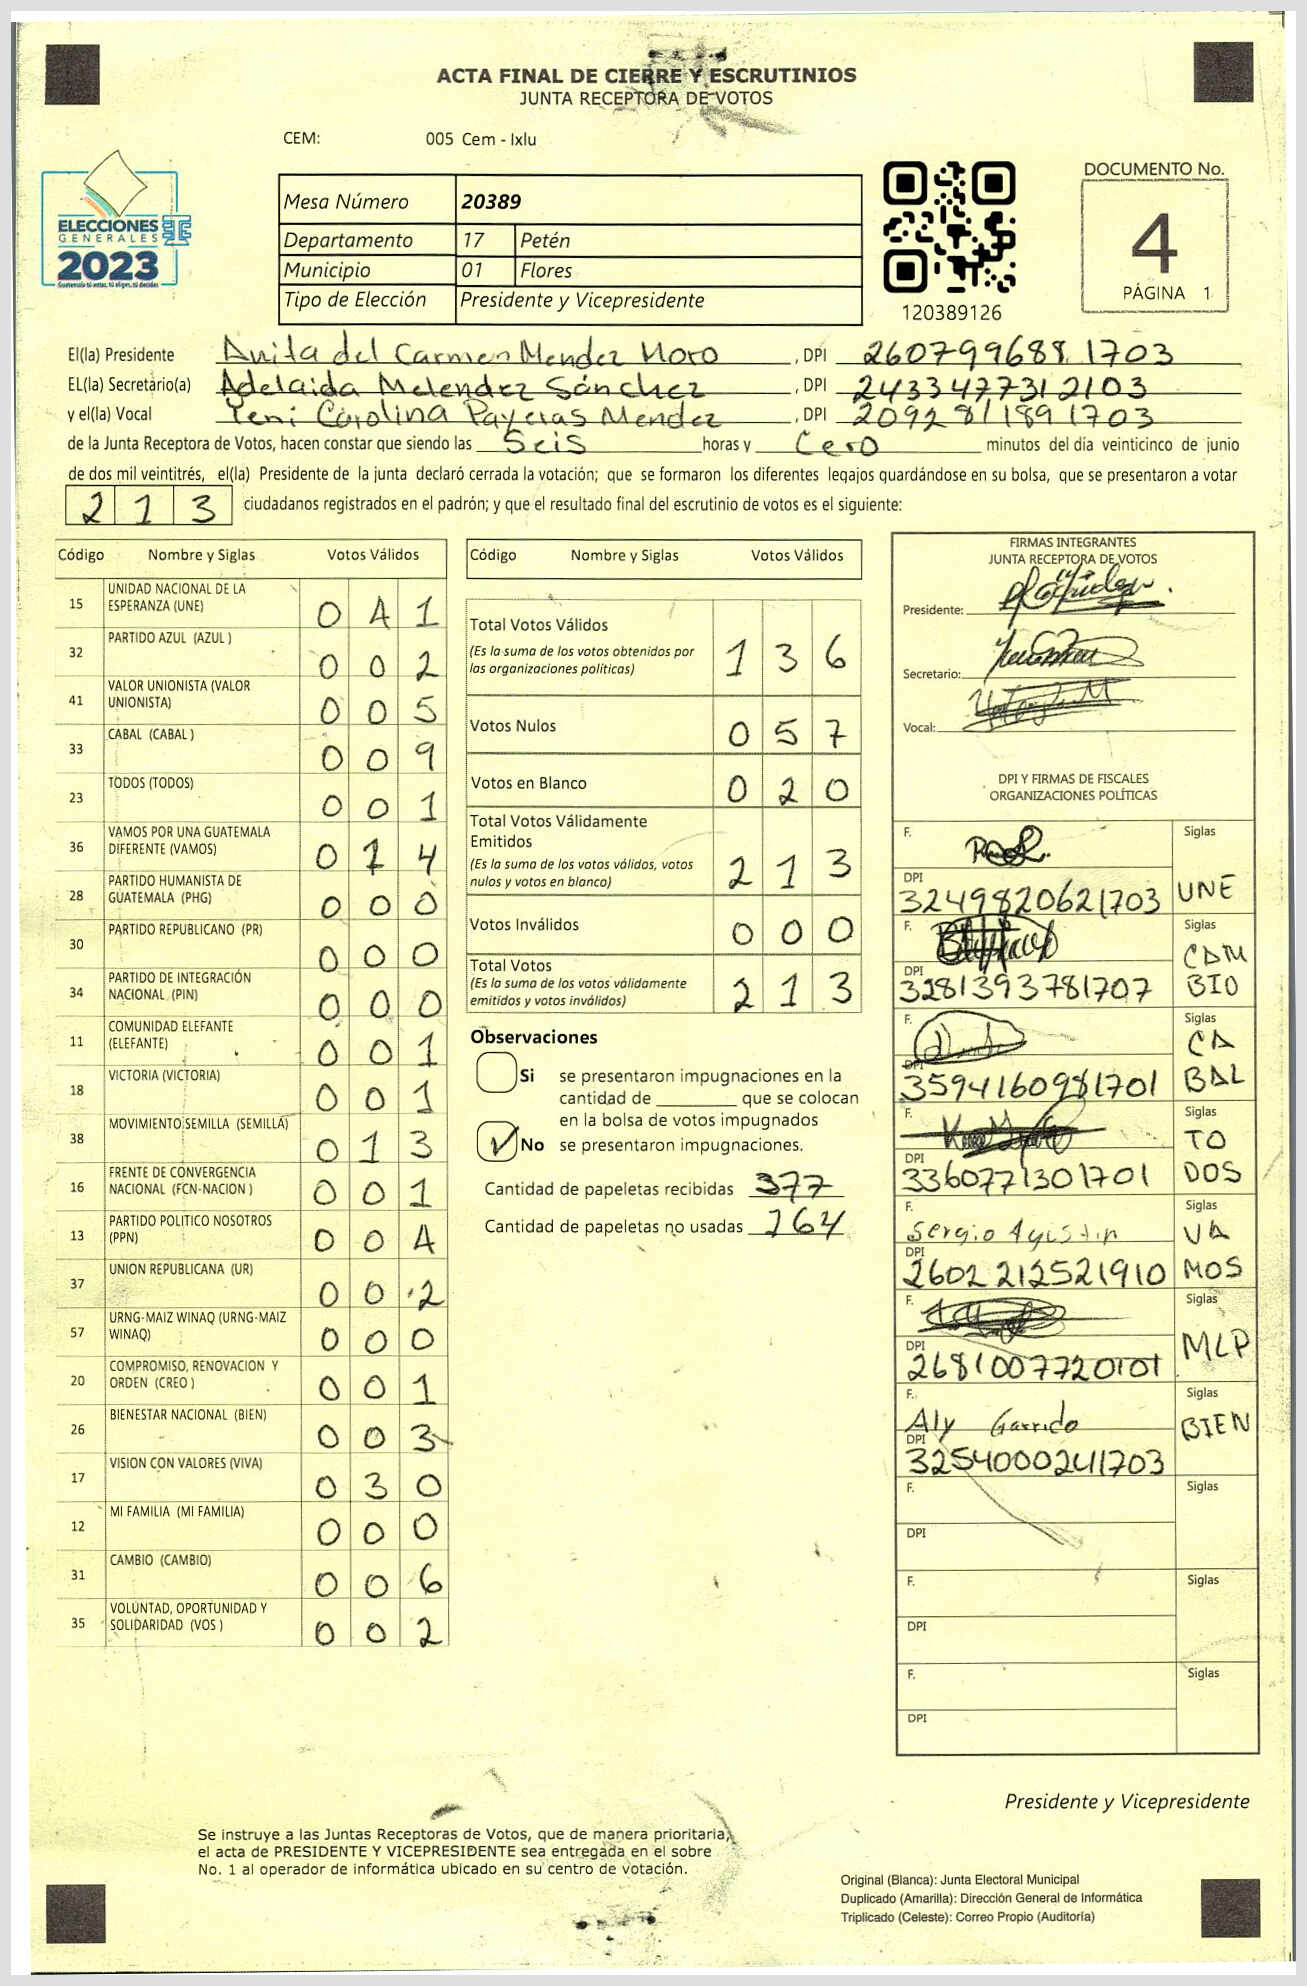 ACTA FINAL DE CIERRE Y ESCRUTINIOS
JUNTA RECEPTORA DE VOTOS
CEM: 005 Cem - Ixlu
ELECCIONES
GENERALES
2023
Guatemala tú votas, tú eliges, tú decides
Mesa Número 20389
Departamento 17 Petén
Municipio 01 Flores
Tipo de Elección Presidente y Vicepresidente
120389126
DOCUMENTO No.
4
PÁGINA 1
El(la) Presidente Anita del Carmen Mendez Moro, DPI 2607996881703
EL(la) Secretario(a) Adelaida Melendez Sánchez, DPI 2433477312103
y el(la) Vocal Yeni Carolina Payeras Mendez, DPI 2092811891703
de la Junta Receptora de Votos, hacen constar que siendo las Seis horas y Cero minutos del día veinticinco de junio
de dos mil veintitrés, el(la) Presidente de la junta declaró cerrada la votación; que se formaron los diferentes legajos guardándose en su bolsa, que se presentaron a votar
213 ciudadanos registrados en el padrón; y que el resultado final del escrutinio de votos es el siguiente:
Código Nombre y Siglas Votos Válidos
15 UNIDAD NACIONAL DE LA ESPERANZA (UNE) 0 4 1
32 PARTIDO AZUL (AZUL ) 0 0 2
41 VALOR UNIONISTA (VALOR UNIONISTA) 0 0 5
33 CABAL (CABAL ) 0 0 9
23 TODOS (TODOS) 0 0 1
36 VAMOS POR UNA GUATEMALA DIFERENTE (VAMOS) 0 1 4
28 PARTIDO HUMANISTA DE GUATEMALA (PHG) 0 0 0
30 PARTIDO REPUBLICANO (PR) 0 0 0
34 PARTIDO DE INTEGRACIÓN NACIONAL (PIN) 0 0 0
11 COMUNIDAD ELEFANTE (ELEFANTE) 0 0 1
18 VICTORIA (VICTORIA) 0 0 1
38 MOVIMIENTO SEMILLA (SEMILLA) 0 1 3
16 FRENTE DE CONVERGENCIA NACIONAL (FCN-NACION ) 0 0 1
13 PARTIDO POLITICO NOSOTROS (PPN) 0 0 4
37 UNION REPUBLICANA (UR) 0 0 2
57 URNG-MAIZ WINAQ (URNG-MAIZ WINAQ) 0 0 0
20 COMPROMISO, RENOVACION Y ORDEN (CREO ) 0 0 1
26 BIENESTAR NACIONAL (BIEN) 0 0 3
17 VISION CON VALORES (VIVA) 0 3 0
12 MI FAMILIA (MI FAMILIA) 0 0 0
31 CAMBIO (CAMBIO) 0 0 6
35 VOLUNTAD, OPORTUNIDAD Y SOLIDARIDAD (VOS ) 0 0 2
Código Nombre y Siglas Votos Válidos
Total Votos Válidos 1 3 6
(Es la suma de los votos obtenidos por
las organizaciones políticas)
Votos Nulos 0 5 7
Votos en Blanco 0 2 0
Total Votos Válidamente
Emitidos 2 1 3
(Es la suma de los votos válidos, votos
nulos y votos en blanco)
Votos Inválidos 0 0 0
Total Votos 2 1 3
(Es la suma de los votos válidamente
emitidos y votos inválidos)
Observaciones
Si se presentaron impugnaciones en la
cantidad de ________ que se colocan
en la bolsa de votos impugnados
No se presentaron impugnaciones.
Cantidad de papeletas recibidas 377
Cantidad de papeletas no usadas 164
FIRMAS INTEGRANTES
JUNTA RECEPTORA DE VOTOS
Presidente:
Secretario:
Vocal:
DPI Y FIRMAS DE FISCALES
ORGANIZACIONES POLÍTICAS
F. Siglas
DPI
3249820621703 UNE
F. Siglas
DPI CAM
3281393781707 BIO
F. Siglas
DPI CA
3594160981701 BAL
F. Siglas
DPI TO
3360771301701 DOS
F. Siglas
Sergio Agustin VA
DPI
2602212521910 MOS
F. Siglas
DPI MLP
2681007720101
F. Siglas
Aly Garrido BIEN
DPI
3254000241703
F. Siglas
DPI
F. Siglas
DPI
F. Siglas
DPI
Presidente y Vicepresidente
Se instruye a las Juntas Receptoras de Votos, que de manera prioritaria,
el acta de PRESIDENTE Y VICEPRESIDENTE sea entregada en el sobre
No. 1 al operador de informática ubicado en su centro de votación.
Original (Blanca): Junta Electoral Municipal
Duplicado (Amarilla): Dirección General de Informática
Triplicado (Celeste): Correo Propio (Auditoría)